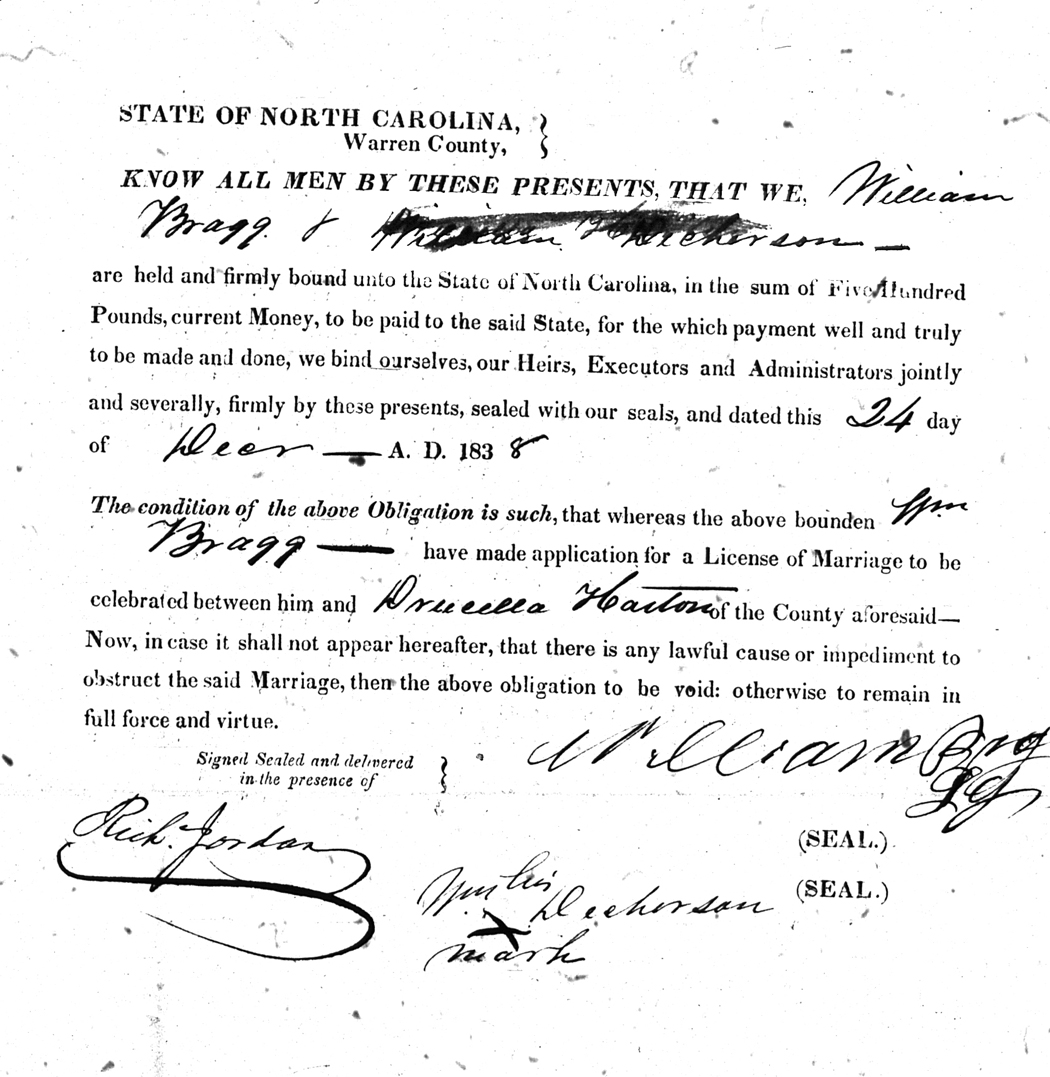 STATE OF NORTH CAROLINA,
Warren County,
KNOW ALL MEN BY THESE PRESENTS, THAT WE, William
Bragg & William Dickerson —
are held and firmly bound unto the State of North Carolina, in the sum of Five Hundred
Pounds, current Money, to be paid to the said State, for the which payment well and truly
to be made and done, we bind ourselves, our Heirs, Executors and Administrators jointly
and severally, firmly by these presents, sealed with our seals, and dated this 24 day
of Decr — A. D. 1838
The condition of the above Obligation is such, that whereas the above bounden Wm
Bragg — have made application for a License of Marriage to be
celebrated between him and Drucilla Harton of the County aforesaid—
Now, in case it shall not appear hereafter, that there is any lawful cause or impediment to
obstruct the said Marriage, then the above obligation to be void: otherwise to remain in
full force and virtue.
Signed Sealed and delivered
in the presence of
William
Richd. Jordan
(SEAL.)
Wm his Dickerson (SEAL.)
X
mark